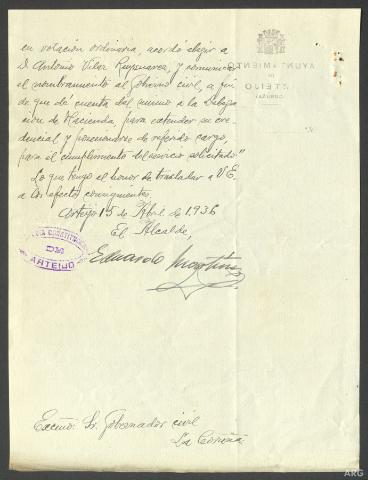 en votación ordinaria, acordó elegir a
D Antonio Vilar y comunicar
el nombramiento al Gobierno civil, a fin
de que de cuenta del mismo a la Delega
ción de Hacienda, para extender su cre-
dencial y posesionarse de referido cargo,
para el cumplimiento del servicio solicitado"
Lo que tengo el honor de trasladar a V.E.
a los efectos consiguientes.
Arteijo 15 de Abril de 1.936
El Alcalde,
Eduardo Martínez
ARTEIJO
AYUNTAMIENTO
DE
ARTEIJO
(CORUÑA)
Excmo. Sr. Gobernador civil
La Coruña
ARG